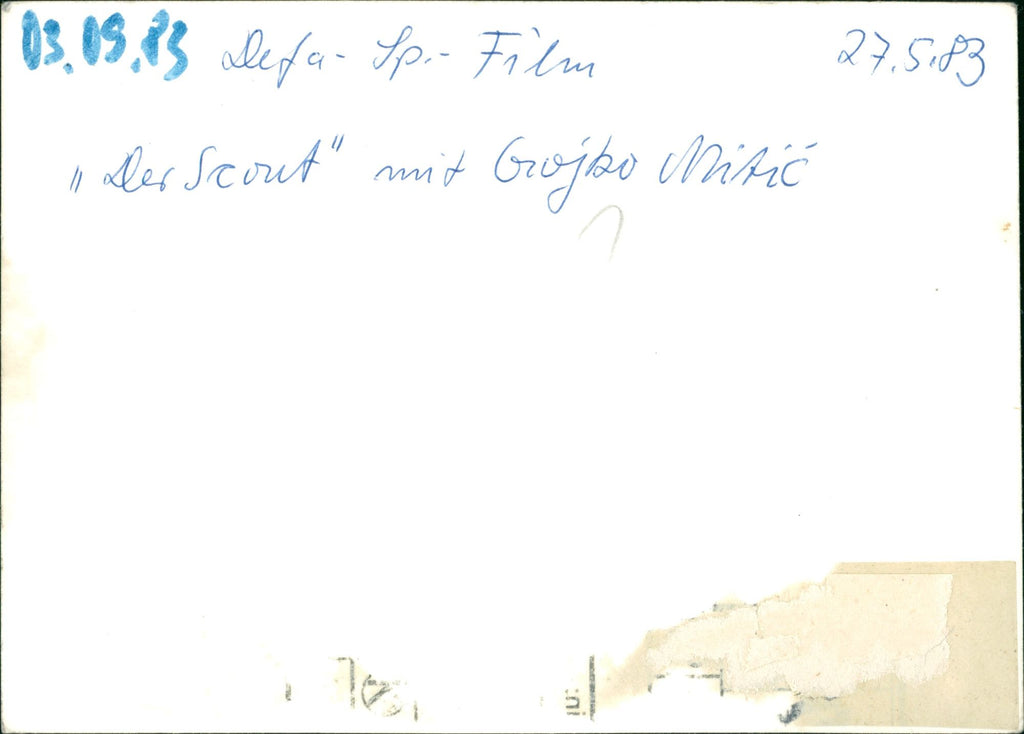 03.09.83 Defa- Sp.- Film 27.5.83
„Der Scout" mit Gojko Mitić